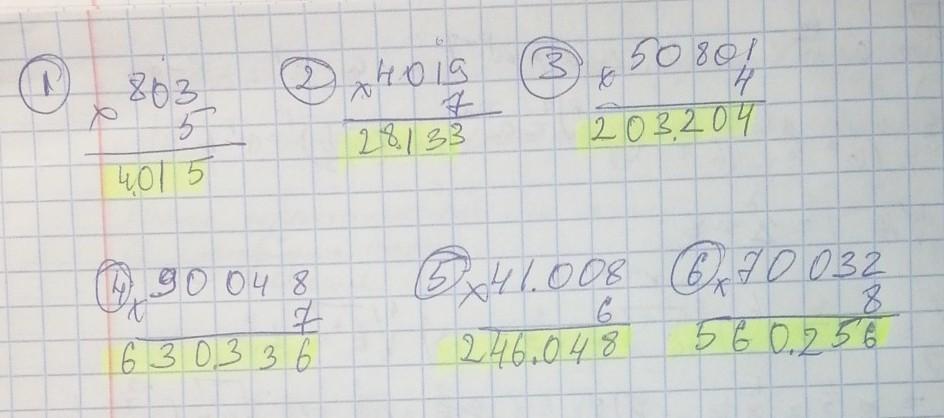 1 803
x 5
4.015
2 x 4019
7
28.133
3 x 50801
4
203.204
4 x 90048
7
630.336
5 x 41.008
6
246.048
6 x 70032
8
560.256